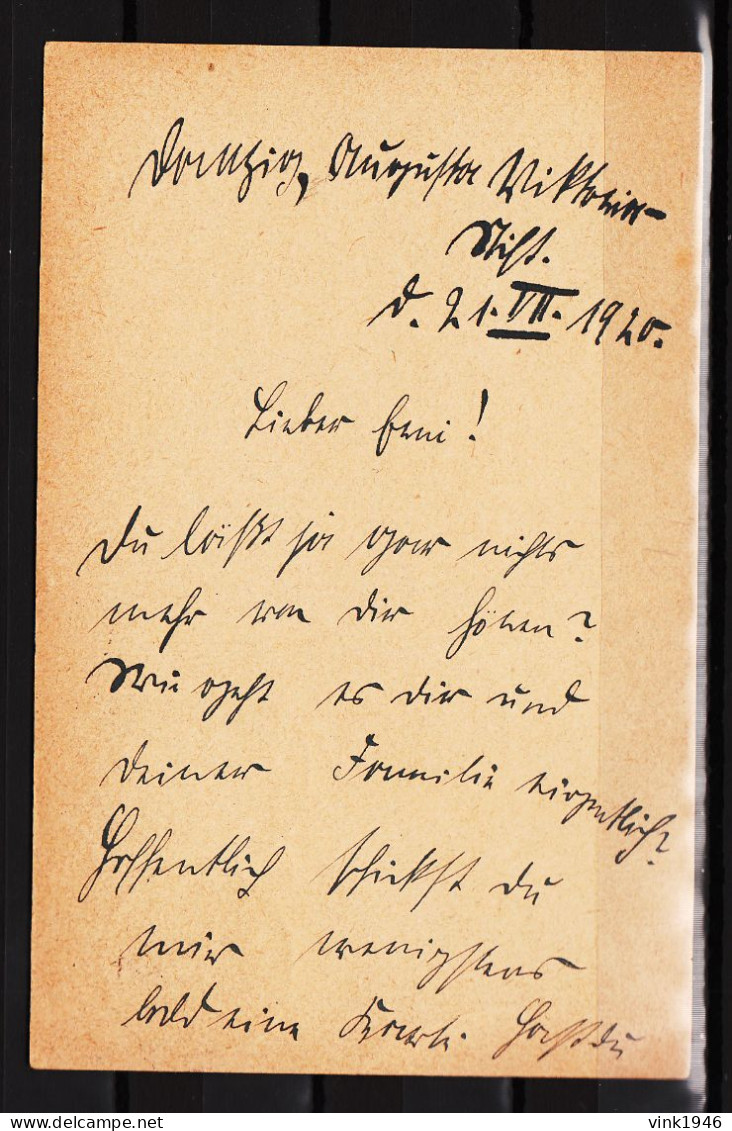 Danzig, Augusta Viktoria-
Stift.
d. 21. VII. 1920.
Lieber Erni!
Du läßt ja gar nichts
mehr von Dir hören?
Wie geht es Dir und
Deiner Familie eigentlich?
Hoffentlich schickst Du
mir wenigstens
bald eine Karte. Hast Du
vink1946